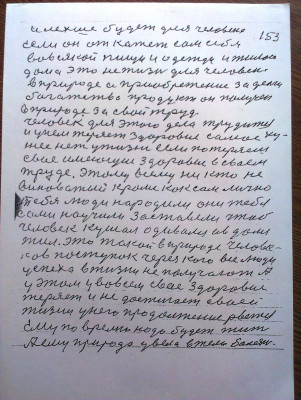 153
и легше будет для человека
если он откажет сам себя
во всякой пищи и одежде и жилого
дома это не жизни для человека
в природе а приобретение за деньги
богатства продукт он получает
в природе за свой труд.
человек для этого дела трудится
и у нем теряет здоровье самое ху-
жее нет у жизни если потеряем
свое имеющие здоровье в своем
труде, этому всему никто не
виноватый кроме как сам лично
тебя люди народили они тебя
сами научили заставели чтоб
человек кушал одивался в доме
жил. Это такой в природе челове-
ков поступок через кого все люди
успеха в жизни не получают А
у этом у во всем свае здоровие
теряет и не достигает своей
жизни у него продолжение рвется
Ему по времени надо будет жить
А ему природа ввела в тело болезнь.